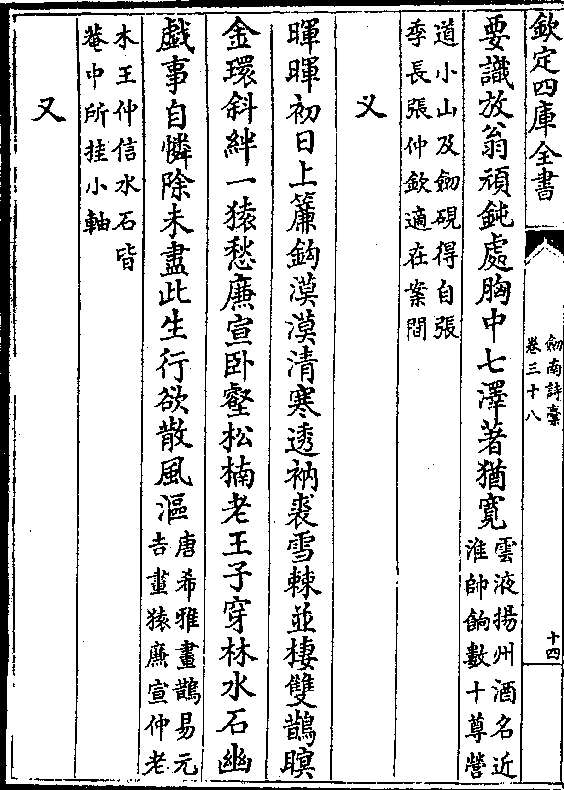 欽定四庫全書
劒南詩稾
卷三十八
十四
要識放翁頑鈍處胸中七澤著猶寛
雲液揚州酒名近
淮帥餉數十尊營
道小山及劒硯得自張
季長張仲欽適在案間
又
暉暉初日上簾鈎漠漠清寒透衲裘雪棘並棲雙鵲暝
金環斜絆一猿愁廉宣卧壑松楠老王子穿林水石幽
戲事自憐除未盡此生行欲散風漚
唐希雅畫鵲易元
吉畫猿廉宣仲老
木王仲信水石皆
菴中所挂小軸
又